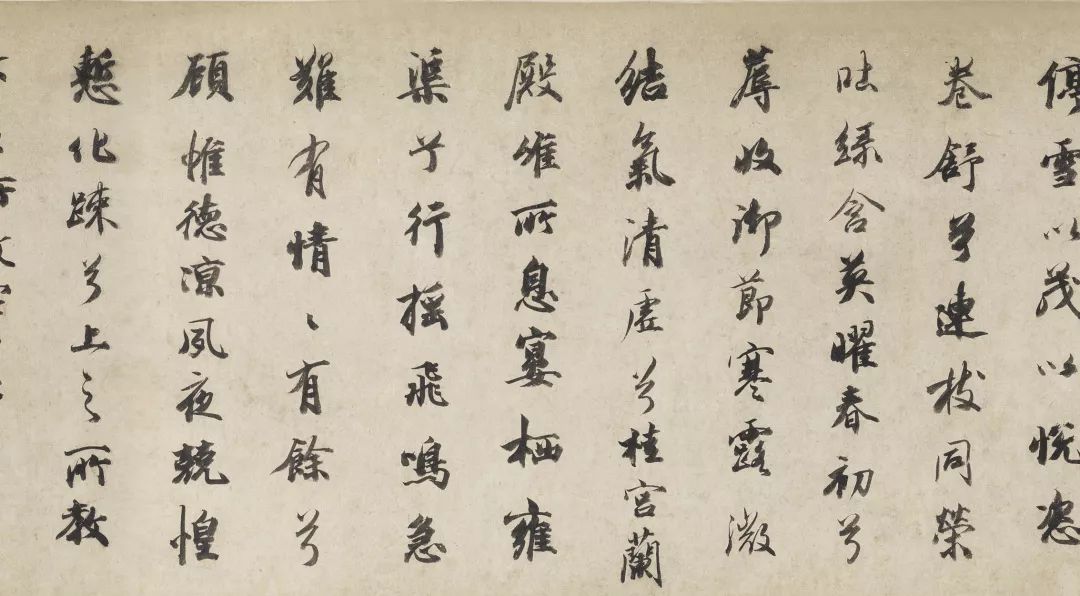 停雪以茂以悅恣
卷舒兮連枝同榮
吐綠含英曜春初兮
蓐收御節寒露微
結氣清虛兮桂宮蘭
殿唯所息宴栖雍
渠兮行搖飛鳴急
難有情情有餘兮
顧惟德涼夙夜兢惶
慙化踈兮上之所教